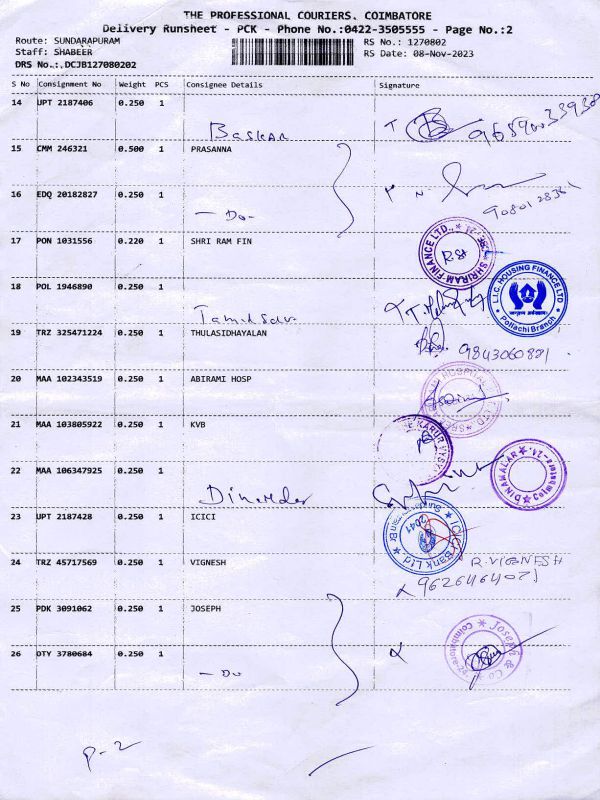 THE PROFESSIONAL COURIERS, COIMBATORE
Delivery Runsheet - PCK - Phone No.:0422-3505555 - Page No.:2
Route: SUNDARAPURAM RS No.: 1270802
Staff: SHABEER RS Date: 08-Nov-2023
DRS No.:.DCJB127080202
S No Consignment No Weight PCS Consignee Details Signature
14 UPT 2187406 0.250 1
Baskar
15 CMM 246321 0.500 1 PRASANNA
16 EDQ 20182827 0.250 1
— Do -
17 PON 1031556 0.220 1 SHRI RAM FIN
SHRIRAM FINANCE LTD.,
18 POL 1946890 0.250 1
L.I.C. HOUSING FINANCE LTD
Pollachi Branch
19 TRZ 325471224 0.250 1 THULASIDHAYALAN
9843060821
20 MAA 102343519 0.250 1 ABIRAMI HOSP
21 MAA 103805922 0.250 1 KVB
22 MAA 106347925 0.250 1
DINAMALAR
Coimbatore-24.
23 UPT 2187428 0.250 1 ICICI
ICICI Bank Ltd
2041
24 TRZ 45717569 0.250 1 VIGNESH
R. VIGNESH
9626464071
25 PDK 3091062 0.250 1 JOSEPH
Joseph & Co
Coimbatore-24.
26 OTY 3780684 0.250 1
— Do
P-2